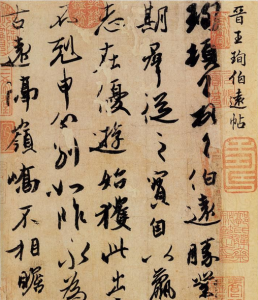 晋王珣伯遠帖
珣頓首頓首伯遠勝業情
期羣從之寶自以羸患
志在優遊始獲此出意
不剋申分別如昨永為疇
古遠隔嶺嶠不相瞻